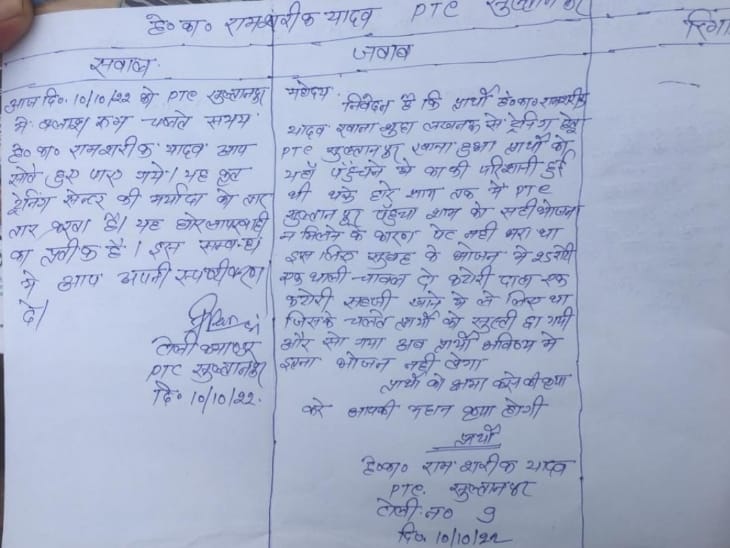 हे०का० रामशरीक यादव PTC सुल्तानपुर
सवाल
आज दि० 10/10/22 को PTC सुल्तानपुर
में क्लास रूम चलते समय
हे०का० रामशरीक यादव आप
सोते हुए पाए गये। यह कृत
ट्रेनिंग सेन्टर की मर्यादा को तार
तार करता है। यह घोर लापरवाही
का प्रतीक है। इस सम्बन्ध
में आप अपनी स्पष्टीकरण
दें।
टोली कमाण्डर
PTC सुल्तानपुर
दि० 10/10/22.
जवाब
महोदय
निवेदन है कि प्रार्थी हे०का० रामशरीक
यादव रवाना शुदा लखनऊ से ट्रेनिंग हेतु
PTC सुल्तानपुर रवाना हुआ प्रार्थी को
यहाँ पहुँचने में काफी परिशानी हुई
थी थके हारे शाम तक मैं PTC
सुल्तानपुर पहुँचा शाम को सही भोजन
न मिलने के कारण पेट नही भरा था
इस लिए सुबह के भोजन में 25 रोटी
एक थाली चावल दो कटोरी दाल एक
कटोरी सब्जी खाने में ले लिए था
जिसके चलते प्रार्थी को सुस्ती छा गयी
और सो गया अब प्रार्थी भविष्य में
इतना भोजन नही लेगा
प्रार्थी को क्षमा करने की कृपा
करे आपकी महान कृपा होगी
प्रार्थी
हे०का० राम शरीक यादव
PTC. सुल्तानपुर
टोली न० 9
दि० 10/10/22